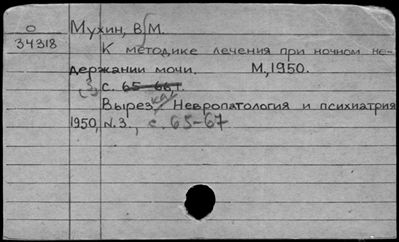 О
34318
Мухин, В. М.
К методике лечения при ночном не-
держании мочи. М., 1950.
3 с. 65-66 т.
Вырез. Невропатология и психиатрия
1950, N.3., с. 65-67